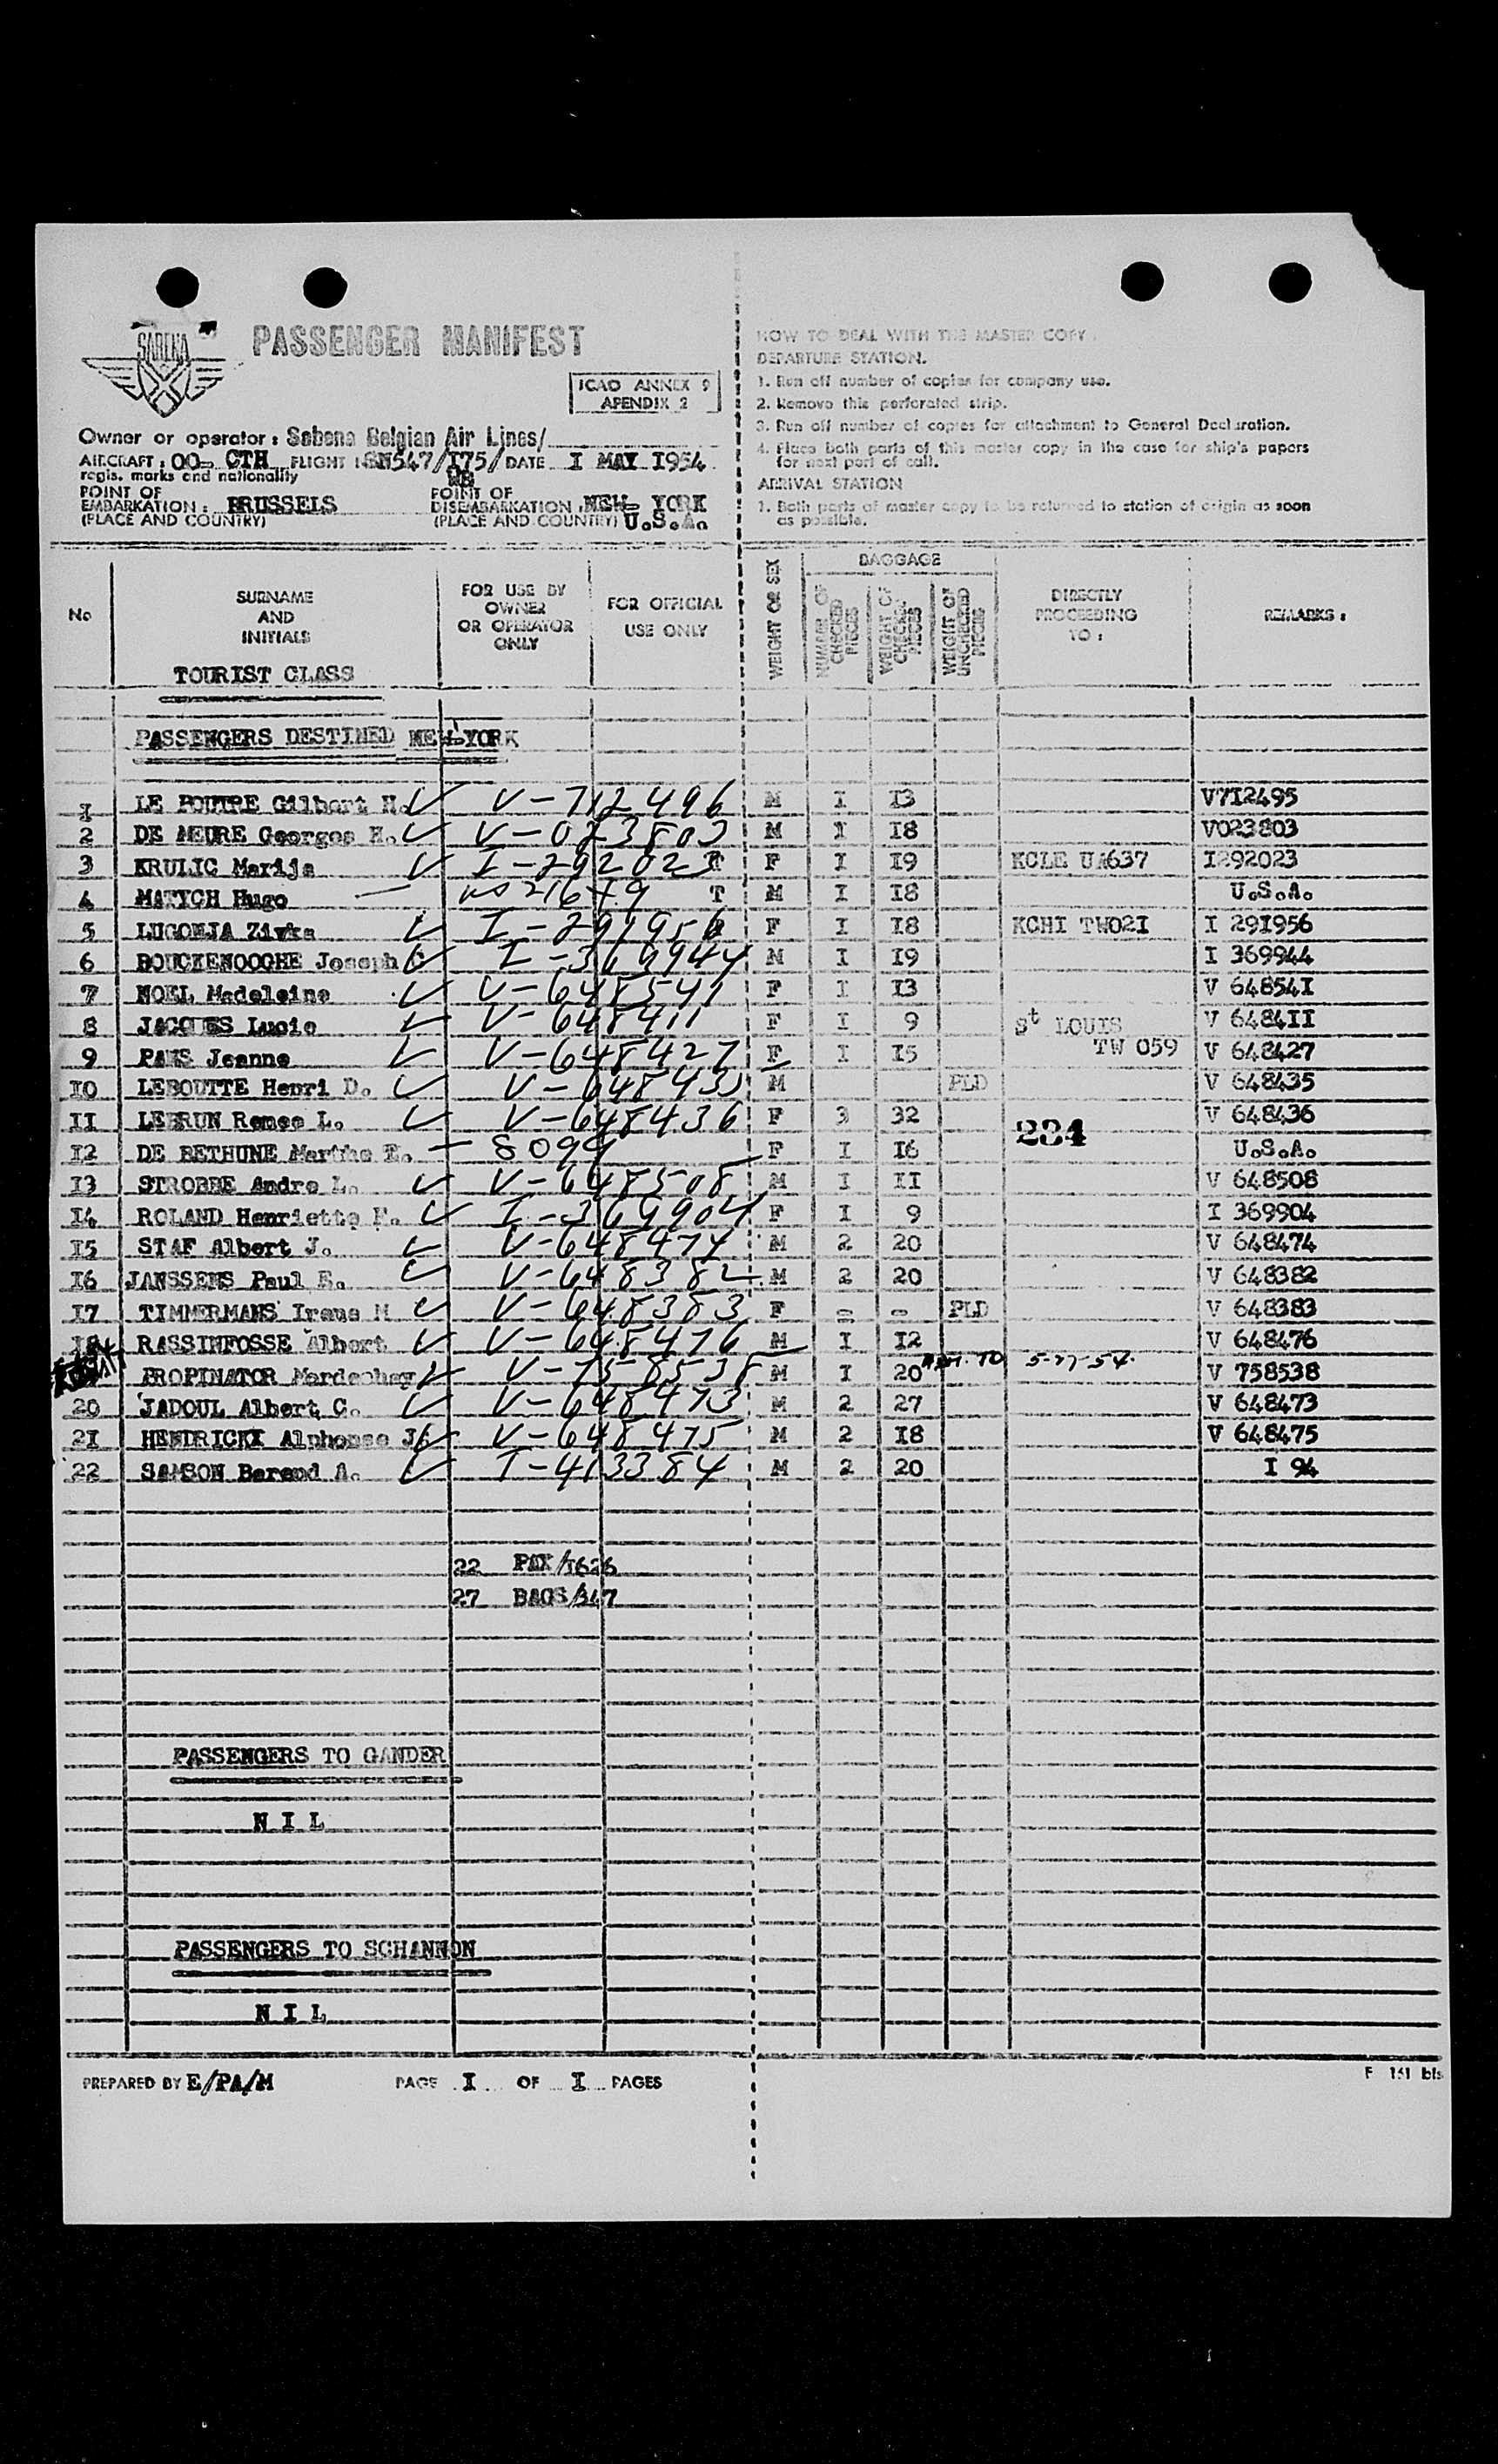 SABENA
PASSENGER MANIFEST
ICAO ANNEX 9
APENDIX 2
Owner or operator : Sabena Belgian Air Lines/
AIRCRAFT : OO- CTH FLIGHT : SN547/175/ DATE I MAY 1954
regis. marks and nationality
POINT OF EMBARKATION : BRUSSELS
(PLACE AND COUNTRY)
POINT OF DISEMBARKATION : NEW- YORK
(PLACE AND COUNTRY) U.S.A.
HOW TO DEAL WITH THE MASTER COPY.
DEPARTURE STATION.
1. Run off number of copies for company use.
2. Remove this perforated strip.
3. Run off number of copies for attachment to General Declaration.
4. Place both parts of this master copy in the case for ship's papers
for next port of call.
ARRIVAL STATION
1. Both parts of master copy to be returned to station of origin as soon
as possible.
No
SURNAME AND INITIALS
FOR USE BY OWNER OR OPERATOR ONLY
FOR OFFICIAL USE ONLY
WEIGHT OR SEX
BAGGAGE
NUMBER OF CHECKED PIECES
WEIGHT OF CHECKED PIECES
WEIGHT OF UNCHECKED PIECES
DIRECTLY PROCEEDING TO :
REMARKS :
TOURIST CLASS
PASSENGERS DESTINED NEW-YORK
I LE POUTRE Gilbert H. V-712496 M I I3 V7I2495
2 DE MEURE Georges H. V-023803 M I I8 V023803
3 KRULIC Marija I-292023 F I I9 KCLE UA637 I292023
4 MATYCH Hugo T M I I8 U.S.A.
5 LUGONJA Zivka I-291956 F I I8 KCHI TW02I I 29I956
6 BOUCKENOOGHE Joseph C I-369944 M I I9 I 369944
7 NOEL Madeleine V-648541 F I I3 V 64854I
8 JACQUES Lucie V-648411 F I 9 St LOUIS V 6484II
9 PAUS Jeanne V-648427 F I I5 TW 059 V 648427
I0 LEBOUTTE Henri D. V-648435 M PLD V 648435
II LEBRUN Renee L. V-648436 F 3 32 V 648436
234
I2 DE BETHUNE Marthe E. 8099 F I I6 U.S.A.
I3 STROBBE Andre L. V-648508 M I II V 648508
I4 ROLAND Henriette F. I-369904 F I 9 I 369904
I5 STAF Albert J. V-648474 M 2 20 V 648474
I6 JANSSENS Paul E. V-648382 M 2 20 V 648382
I7 TIMMERMANS Irene M V-648383 F - - PLD V 648383
I8 RASSINFOSSE Albert V-648476 M I I2 V 648476
PROPINATOR Mardochay V-758538 M I 20 ADM. TO 5-27-54. V 758538
20 JADOUL Albert C. V-648473 M 2 27 V 648473
2I HENDRICKX Alphonse J. V-648475 M 2 I8 V 648475
22 SAMSON Berend A. I-413384 M 2 20 I 94
22 PAX/I626
27 BAGS/347
PASSENGERS TO GANDER
N I L
PASSENGERS TO SCHANNON
N I L
PREPARED BY E/PA/M PAGE I OF I PAGES
F 151 bis